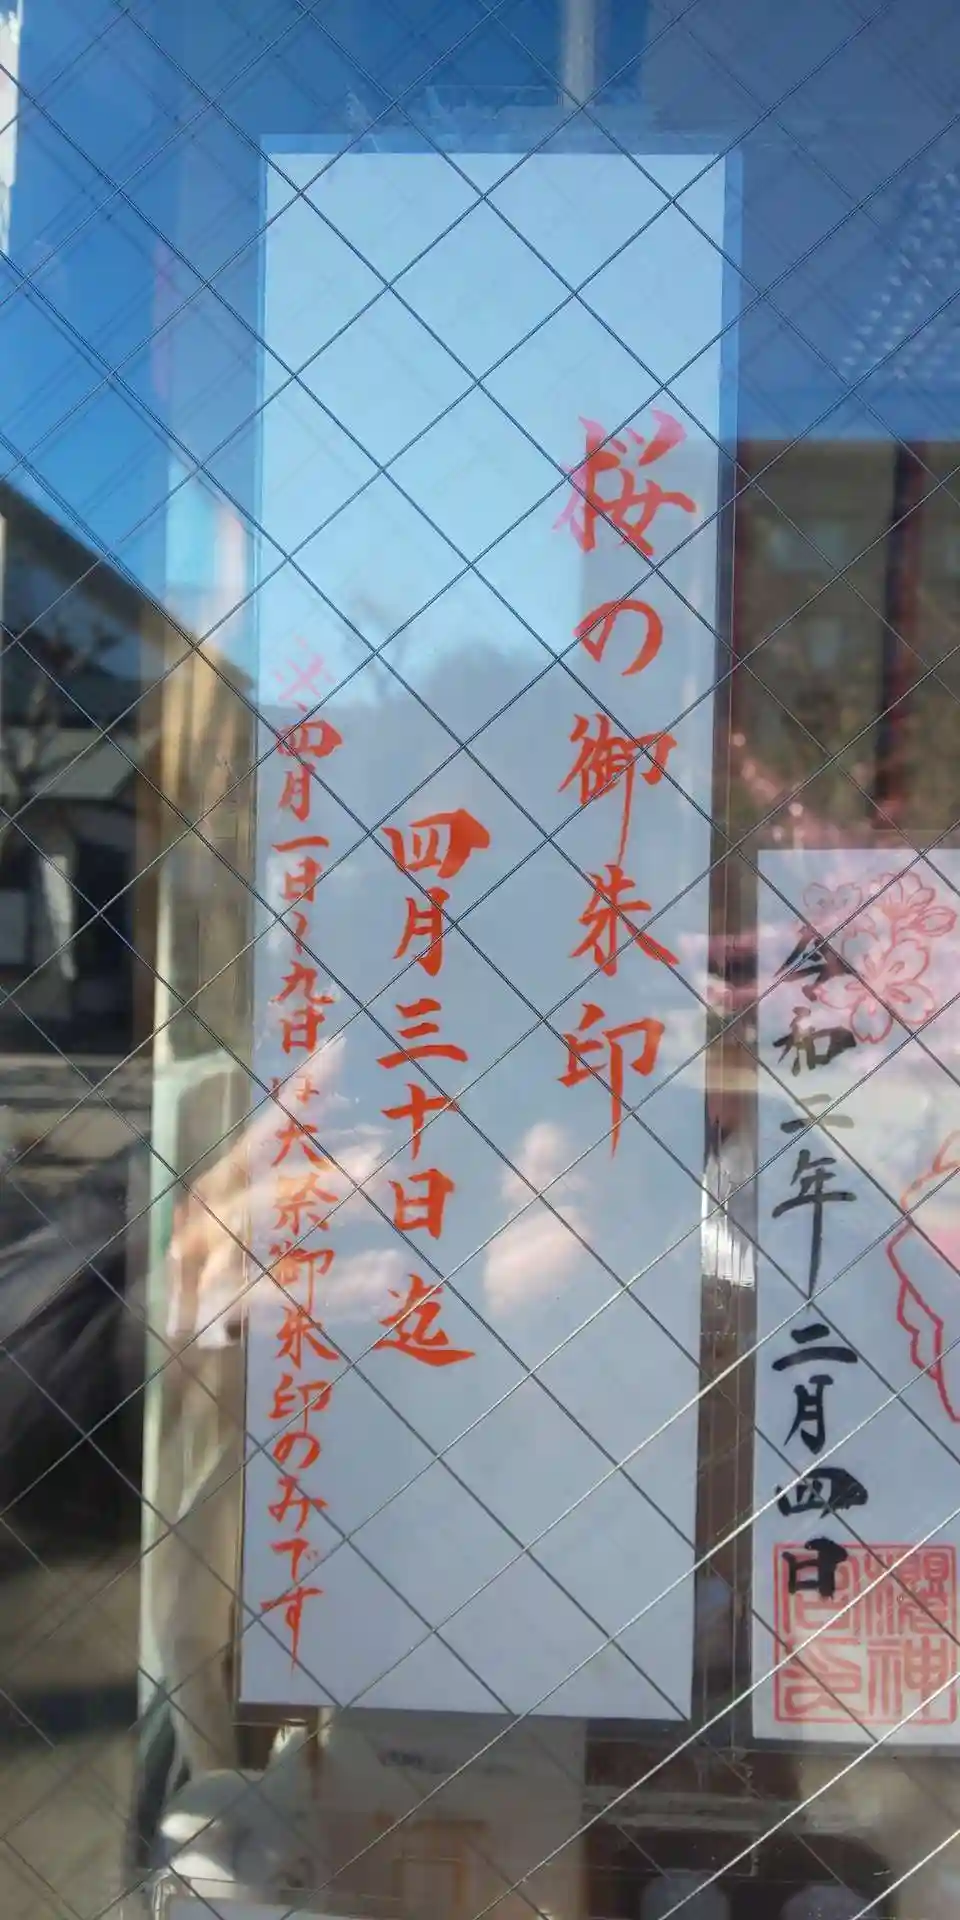 桜の御朱印
四月三十日迄
※四月一日〜九日は大祭御朱印のみです
令和二年二月四日